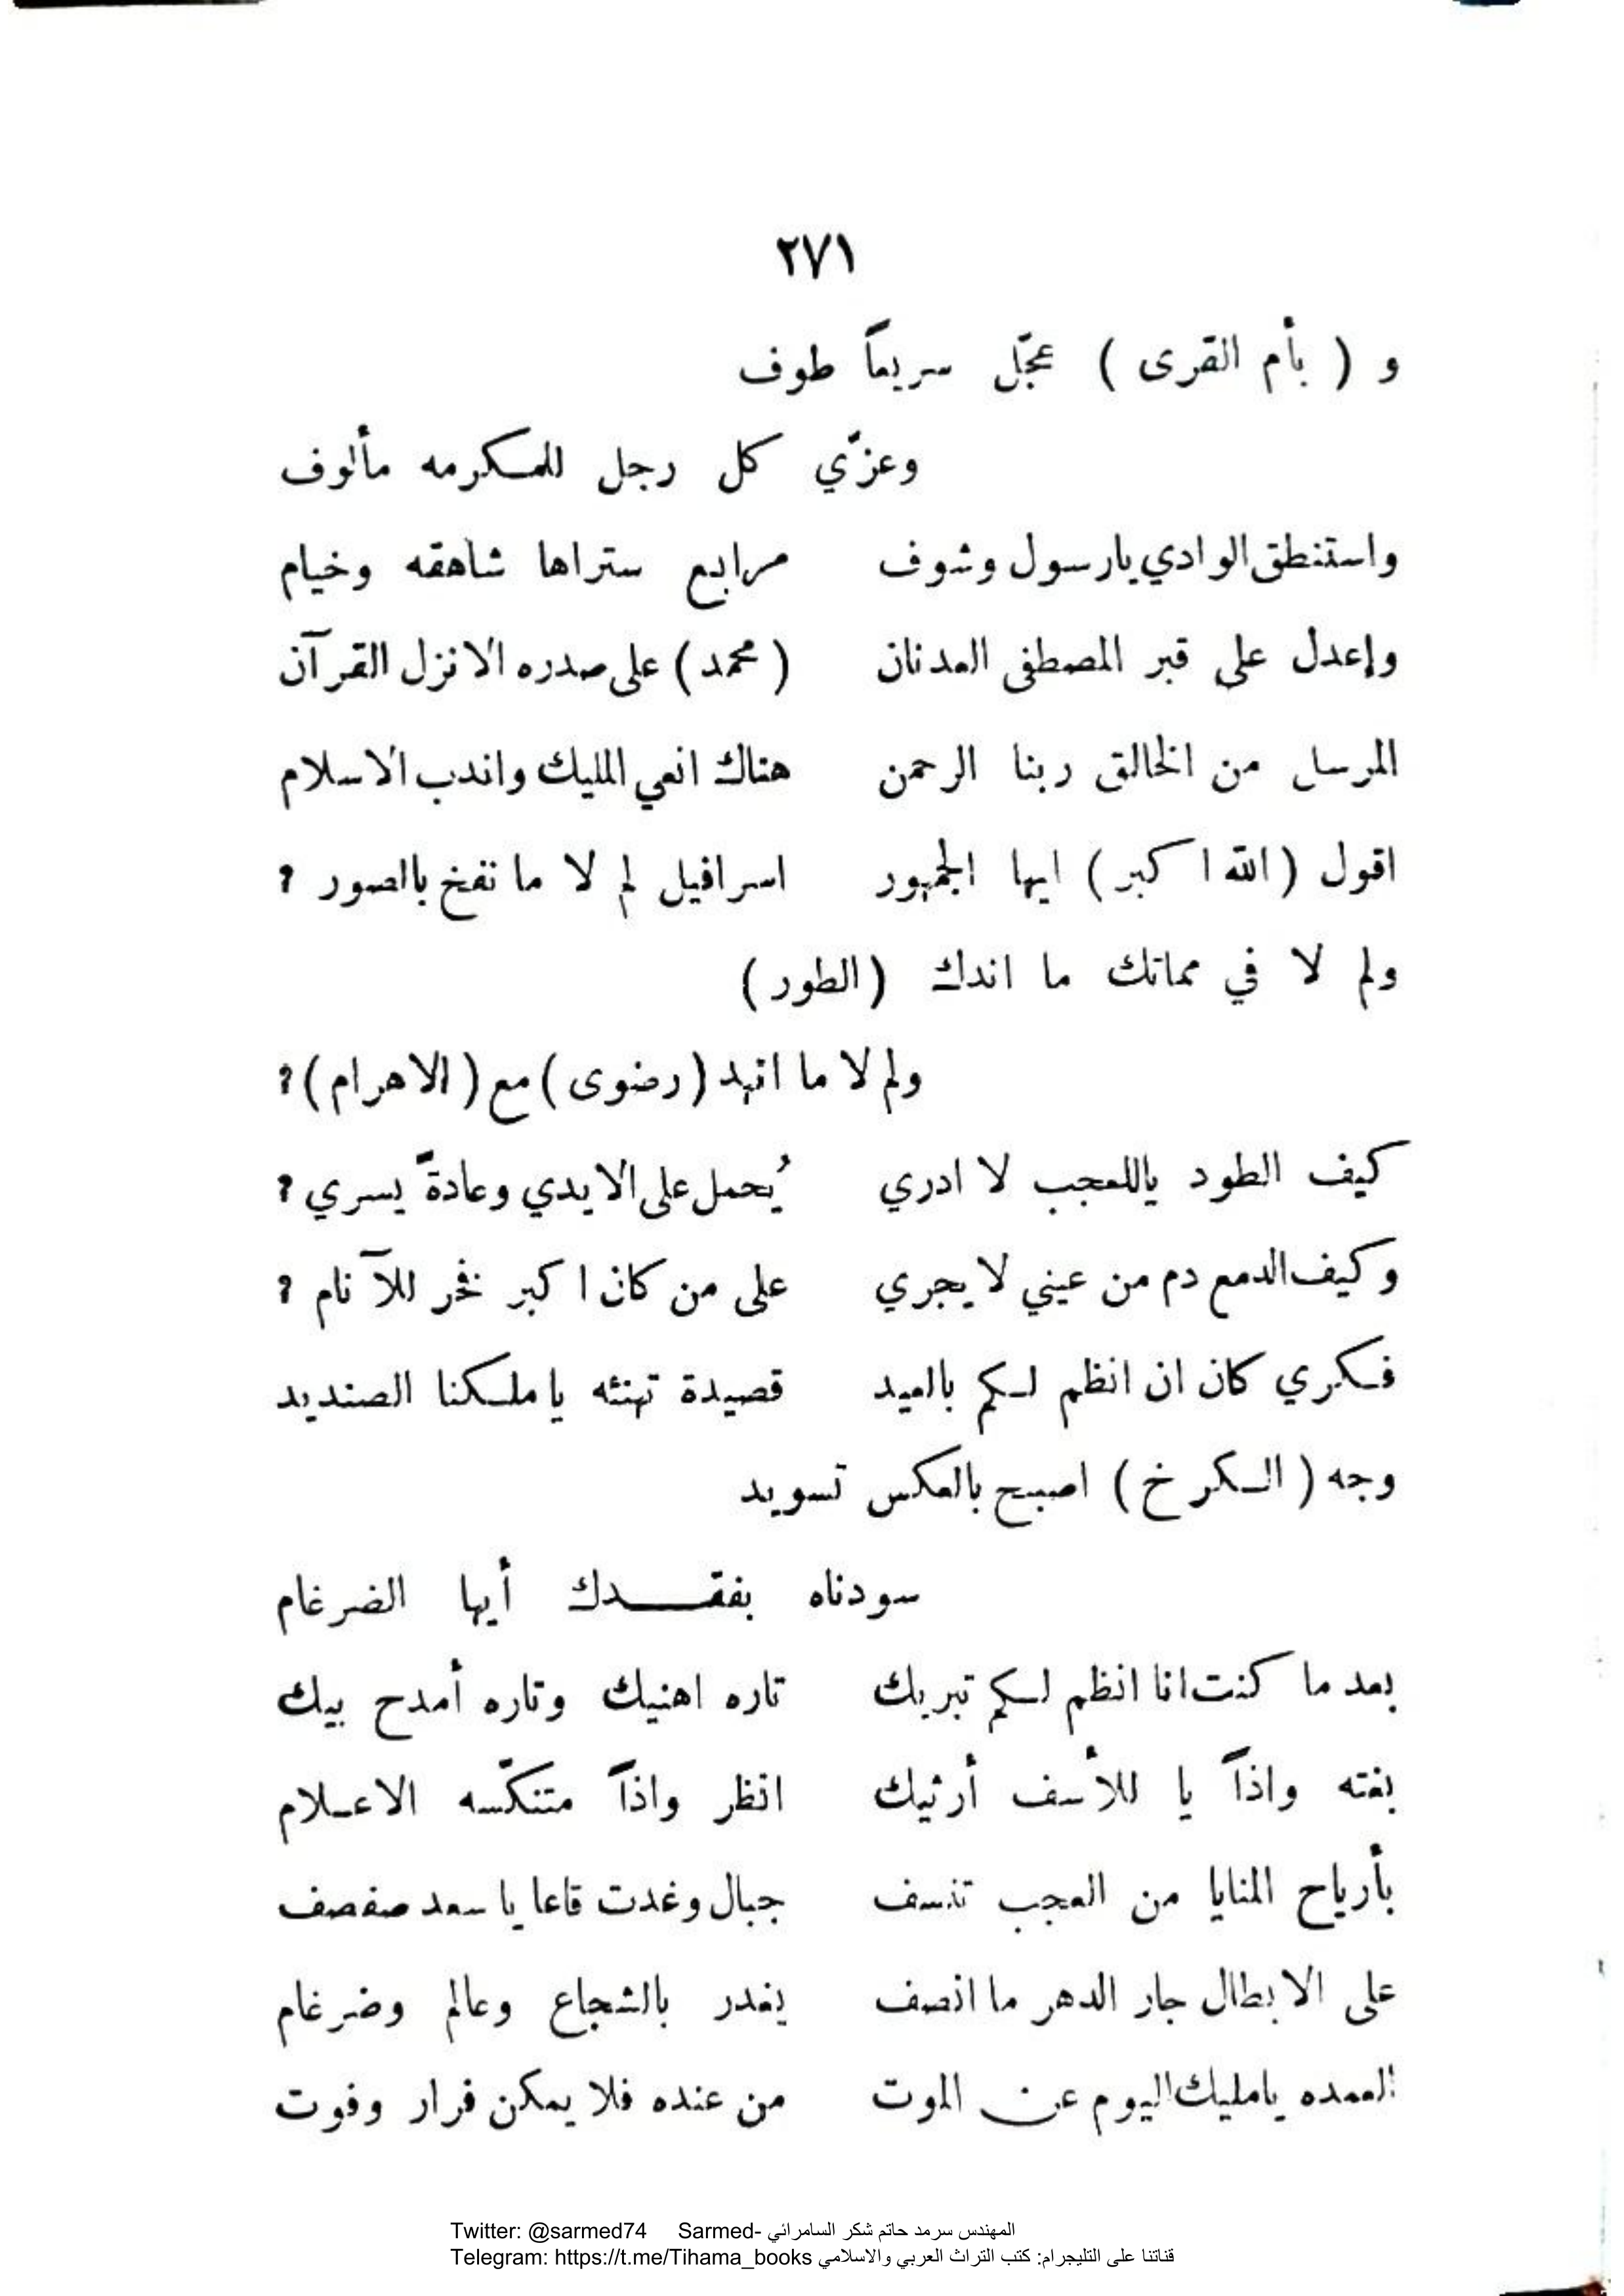 ٢٧١
و ( بأم القرى ) عجّل سريعاً طوف
وعزّي كل رجل للمكرمه مألوف
واستنطق الوادي يارسول وشوف مرابع ستراها شاهقه وخيام
وإعدل على قبر المصطفى العدنان ( محمد ) على صدره الانزل القرآن
المرسل من الخالق ربنا الرحمن هناك انعي المليك واندب الاسلام
اقول ( الله اكبر ) ايها الجمهور اسرافيل لم لا ما نفخ بالصور ؟
ولم لا في مماتك ما اندك ( الطور )
ولم لا ما انهد ( رضوى ) مع ( الاهرام ) ؟
كيف الطود ياللعجب لا ادري يُحمل على الايدي وعادةً يسري ؟
وكيف الدمع دم من عيني لا يجري على من كان اكبر فخر للآنام ؟
فكري كان ان انظم لكم بالعيد قصيدة تهنئه يا ملكنا الصنديد
وجه ( الكرخ ) اصبح بالعكس تسويد
سودناه بفقدك أيها الضرغام
بعد ما كنت انا انظم لكم تبريك تاره اهنيك وتاره أمدح بيك
بغته واذاً يا للأسف أرثيك انظر واذاً متنكّسه الاعلام
بأرياح المنايا من العجب تنسف جبال وغدت قاعا يا سعد صفصف
على الابطال جار الدهر ما انصف يغدر بالشجاع وعالم وضرغام
العمده يامليك اليوم عن الموت من عنده فلا يمكن فرار وفوت
Twitter: @sarmed74 Sarmed- المهندس سرمد حاتم شكر السامرائي
Telegram: https://t.me/Tihama_books قناتنا على التليجرام: كتب التراث العربي والاسلامي